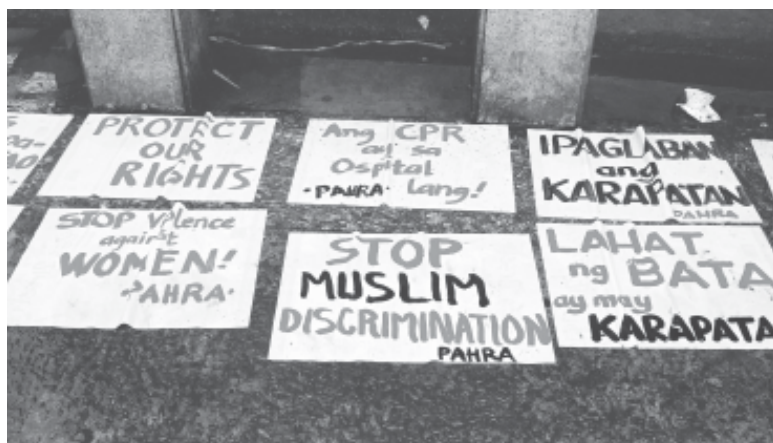 PROTECT
OUR
RIGHTS
Ang CPR
ay sa
Ospital
-PAHRA- lang!
IPAGLABAN
and
KARAPATAN
PAHRA
STOP Violence
against
WOMEN!
-PAHRA-
STOP
MUSLIM
DISCRIMINATION
PAHRA
LAHAT
ng BATA
ay may
KARAPATA